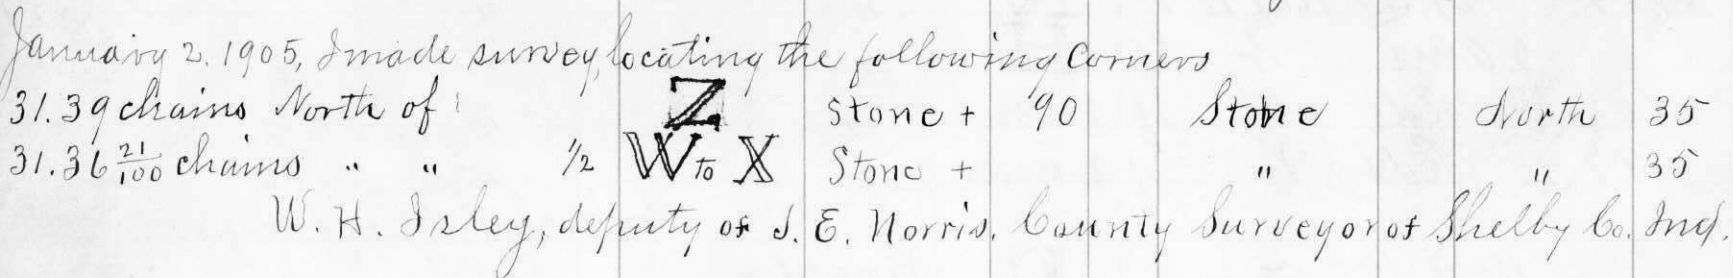 January 2. 1905, I made survey, locating the following Corners
31.39 chains North of Z Stone + 90 Stone North 35
31.36 21/100 chains " " 1/2 W to X Stone + " " 35
W. H. Isley, deputy of J. E. Norris. County Surveyor of Shelby Co. Ind.